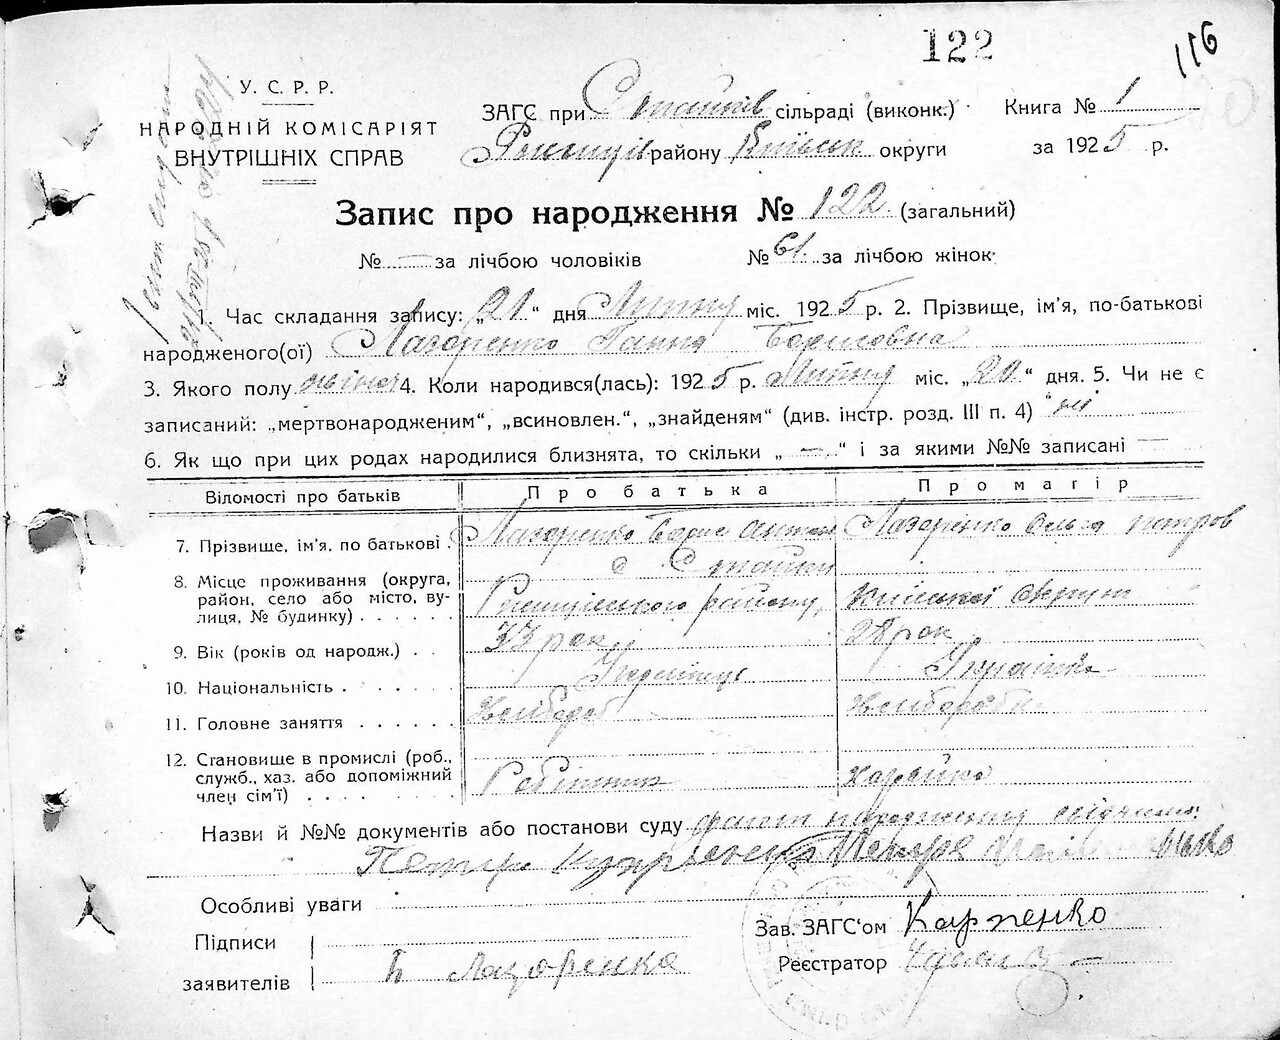 122
116
У. С. Р. Р.
НАРОДНІЙ КОМІСАРІЯТ
ВНУТРІШНІХ СПРАВ
ЗАГС при Стайків сільраді (виконк.)
району Київськ округи
Книга № 1
за 1925 р.
Запис про народження № 122 (загальний)
№ — за лічбою чоловіків № 61 за лічбою жінок
1. Час складання запису: „21“ дня Липня міс. 1925 р. 2. Прізвище, ім'я, по-батькові
народженого(ої) Лазоренко Ганна Борисовна
3. Якого полу жіноч 4. Коли народився(лась): 1925 р. Липня міс. „20“ дня. 5. Чи не є
записаний: „мертвонародженим“, „всиновлен.“, „знайденям“ (див. інстр. розд. III п. 4) ні
6. Як що при цих родах народилися близнята, то скільки „—“ і за якими №№ записані —
Відомості про батьків Про батька Про матір
7. Прізвище, ім'я, по батькові . Лазоренко Борис Антон Лазоренко Ольга Петров
8. Місце проживання (округа, район, село або місто, вулиця, № будинку) . . . . . с Стайки
району, Київської Округи
9. Вік (років од народж.) . . 33 рок 28 рок
10. Національність . . . . . Українець Українка
11. Головне заняття . . . . . . Хлібороб Хліборобка
12. Становище в промислі (роб., служб., хаз. або допоміжний член сім'ї) . . . . Робітник хазяйка
Назви й №№ документів або постанови суду факт народження свідчили:
Петро
Особливі уваги
Підписи
заявителів Б Лазоренко
Зав. ЗАГС'ом Карпенко
Реєстратор